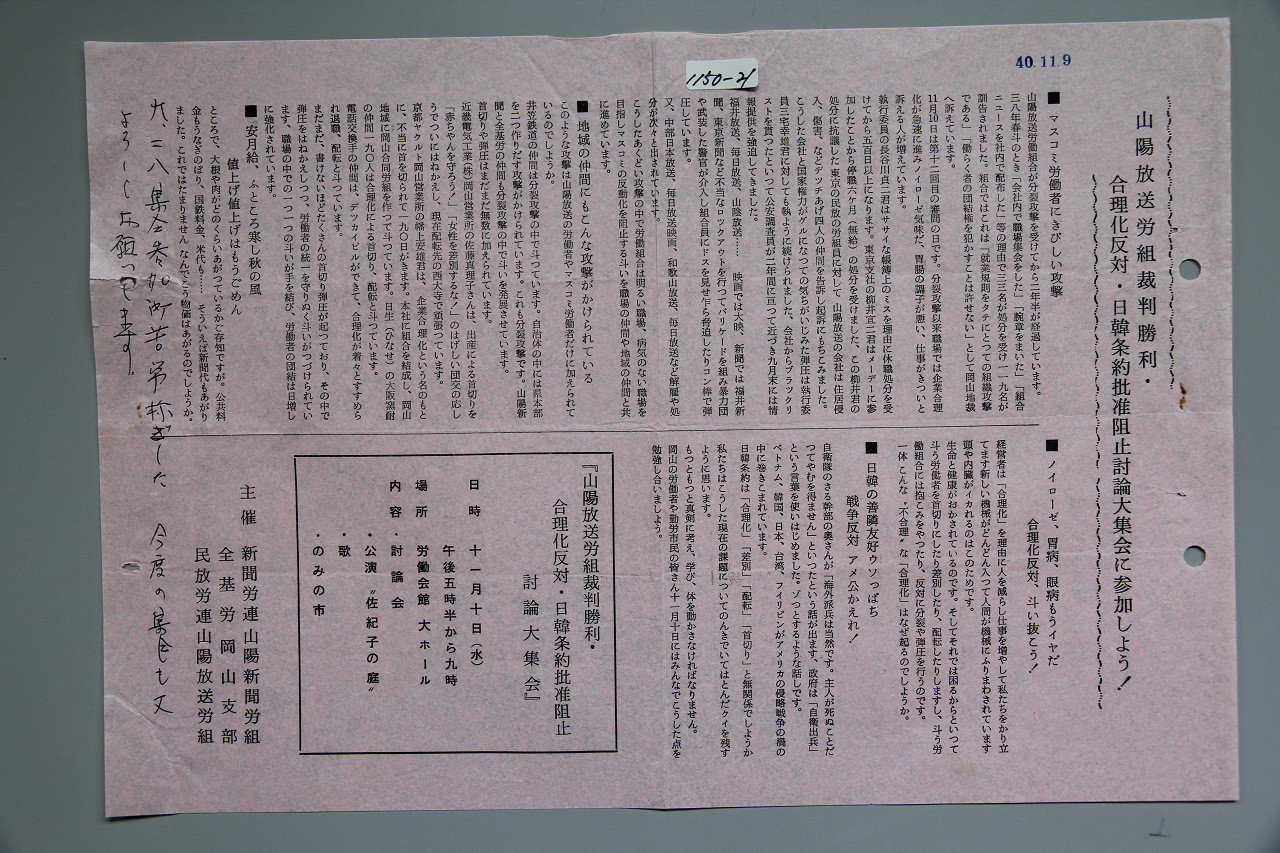 40.11.9
1150-21
山陽放送労組裁判勝利・
合理化反対・日韓条約批准阻止討論大集会に参加しよう!
■ マスコミ労働者にきびしい攻撃
山陽放送労働組合が分裂攻撃を受けてから二年半が経過しています。
三八年春斗のとき「会社内で職場集会をした」「腕章をまいた」「組合
ニュースを社内で配布した」等の理由で三三名が処分を受け一一九名が
訓告されました。組合ではこれは『就業規則をタテにとつての組織攻撃
である』「働らく者の団結権を犯かすことは許せない」として岡山地裁
へ訴えています。
11月10日は第十一回目の審問の日です。分裂攻撃以来職場では企業合理
化が急速に進みノイローゼ気味だ、胃腸の調子が悪い、仕事がきついと
訴える人が増えています。
執行委員の長谷川良二君はササイな帳簿上のミスを理由に休職処分を受
けてから五百日以上になります。東京支社の柳井宜二君はメーデーに参
加したことから停職六ケ月(無給)の処分を受けました。この柳井君の
処分に抗議した東京の民放の労組員に対して山陽放送の会社は住居侵
入、傷害、などデッチあげ四人の仲間を告訴し起訴にもちこみました。
こうした会社と国家権力がグルになつての気ちがいじみた弾圧は執行委
員三宅幸雄君に対しても執ように続けられました。会社からブラックリ
ストを貰つたといつて公安調査員が二年間に亘つて近づき九月末には情
報提供を強迫してきました。
福井放送、毎日放送、山陰放送…… 映画では大映、新聞では福井新
聞、東京新聞など不当なロックアウトを行つてバリケードを組み暴力団
や武装した警官が介入し組合員にドスを見せ乍ら脅迫したりコン棒で弾
圧しています。
又、中部日本放送、毎日放送映画、和歌山放送、毎日放送など解雇や処
分が次々と出されています。
こうしたあくどい攻撃の中で労働組合は明るい職場、病気のない職場を
目指しマスコミの反動化を阻止する斗いを職場の仲間や地域の仲間と共
に進めています。
■ 地域の仲間にもこんな攻撃がかけられている
このような攻撃は山陽放送の労働者やマスコミ労働者だけに加えられて
いるのでしようか。
井笠鉄道の仲間は分裂攻撃の中で斗つています。自治体の中には県本部
を二つ作りだす攻撃がかけられています。これも分裂攻撃です。山陽新
聞と全基労の仲間も分裂攻撃の中で斗いを発展させています。
首切りや弾圧はまだまだ無数に加えられています。
近畿電気工業(株)岡山営業所の佐藤真理子さんは、出産による首切りを
「赤ちゃんを守ろう!」「女性を差別するな!」のはげしい団交の応し
うでついにはねかえし、現在配転先の西大寺で頑張つています。
京都ヤクルト岡山営業所の幡上安雄君は、企業合理化という名のもと
に、不当に首を切られて一九〇日がきます。本社に組合を結成し、岡山
地域に岡山合同労組を作つて斗つています。日生(ひなせ)の大阪窯耐
の仲間一九〇人は合理化による首切り、配転と斗つています。
電話交換手の仲間は、デッカイビルができて、合理化が着々とすすめら
れ退職、配転と斗つています。
まだまだ、書けないほどたくさんの首切り弾圧が起つており、その中で
弾圧をはねかえしつつ、労働者の統一を守りぬく斗いがつづけられてい
ます。職場の中での一つ一つの斗いが手を結び、労働者の団結は日増し
に強化されています。
値上げ値上げはもうごめん
■ 安月給、ふところ寒し秋の風
ところで、大根や肉がどのくらいあがつているかご存知ですが。公共料
金もうなぎのぼり、国鉄料金、米代も…… そういえば新聞代もあがり
ました。これではたまりません なんでこう物価はあがるのでしようか。
■ ノイローゼ、胃病、眼病もうイヤだ
合理化反対、斗い抜こう!
経営者は「合理化」を理由に人を減らし仕事を増やして私たちをかり立
てます新しい機械がどんどん入つて人間が機械にふりまわされています
頭や内臓がイカれるのはこのためです。
生命と健康がおかされているのです。そしてそれでは困るからといつて
斗う労働者を首切りにしたり差別したり、配転したりしますし、斗う労
働組合には抱きこみをやつたり、反対に分裂や弾圧を行うのです。
一体 こんな〝不合理〟な「合理化」はなぜ起るのでしようか。
■ 日韓の善隣友好ウソっぱち
戦争反対 アメ公かえれ!
自衛隊のさる幹部の奥さんが「海外派兵は当然です。主人が死ぬことだ
つてやむを得ません」といつたという話が出ます、政府は「自衛出兵」
という言葉を使いはじめました。ゾつとするような話しです。
ベトナム、韓国、日本、台湾、フィリピンがアメリカの侵略戦争の渦の
中に巻きこまれています。
日韓条約は「合理化」「差別」「配転」「首切り」と無関係でしようか
私たちはこうした現在の課題についてのんきでいてはとんだクィを残す
ように思います。
もつともつと真剣に考え、学び、体を動かさなければなりません。
岡山の労働者や勤労市民の皆さん十一月十日にはみんなでこうした点を
勉強し合いましよう。
『山陽放送労組裁判勝利・
合理化反対・日韓条約批准阻止
討論大集会』
日 時 十一月十日(水)
午後五時半から九時
場 所 労働会館 大ホール
内 容 ・討論会
・公演〝佐紀子の庭〟
・歌
・のみの市
主 催 新聞労連山陽新聞労組
全基労岡山支部
民放労連山陽放送労組
九・二八集会参加所苦労様でした 今度の集会も又
よろしくお願いします